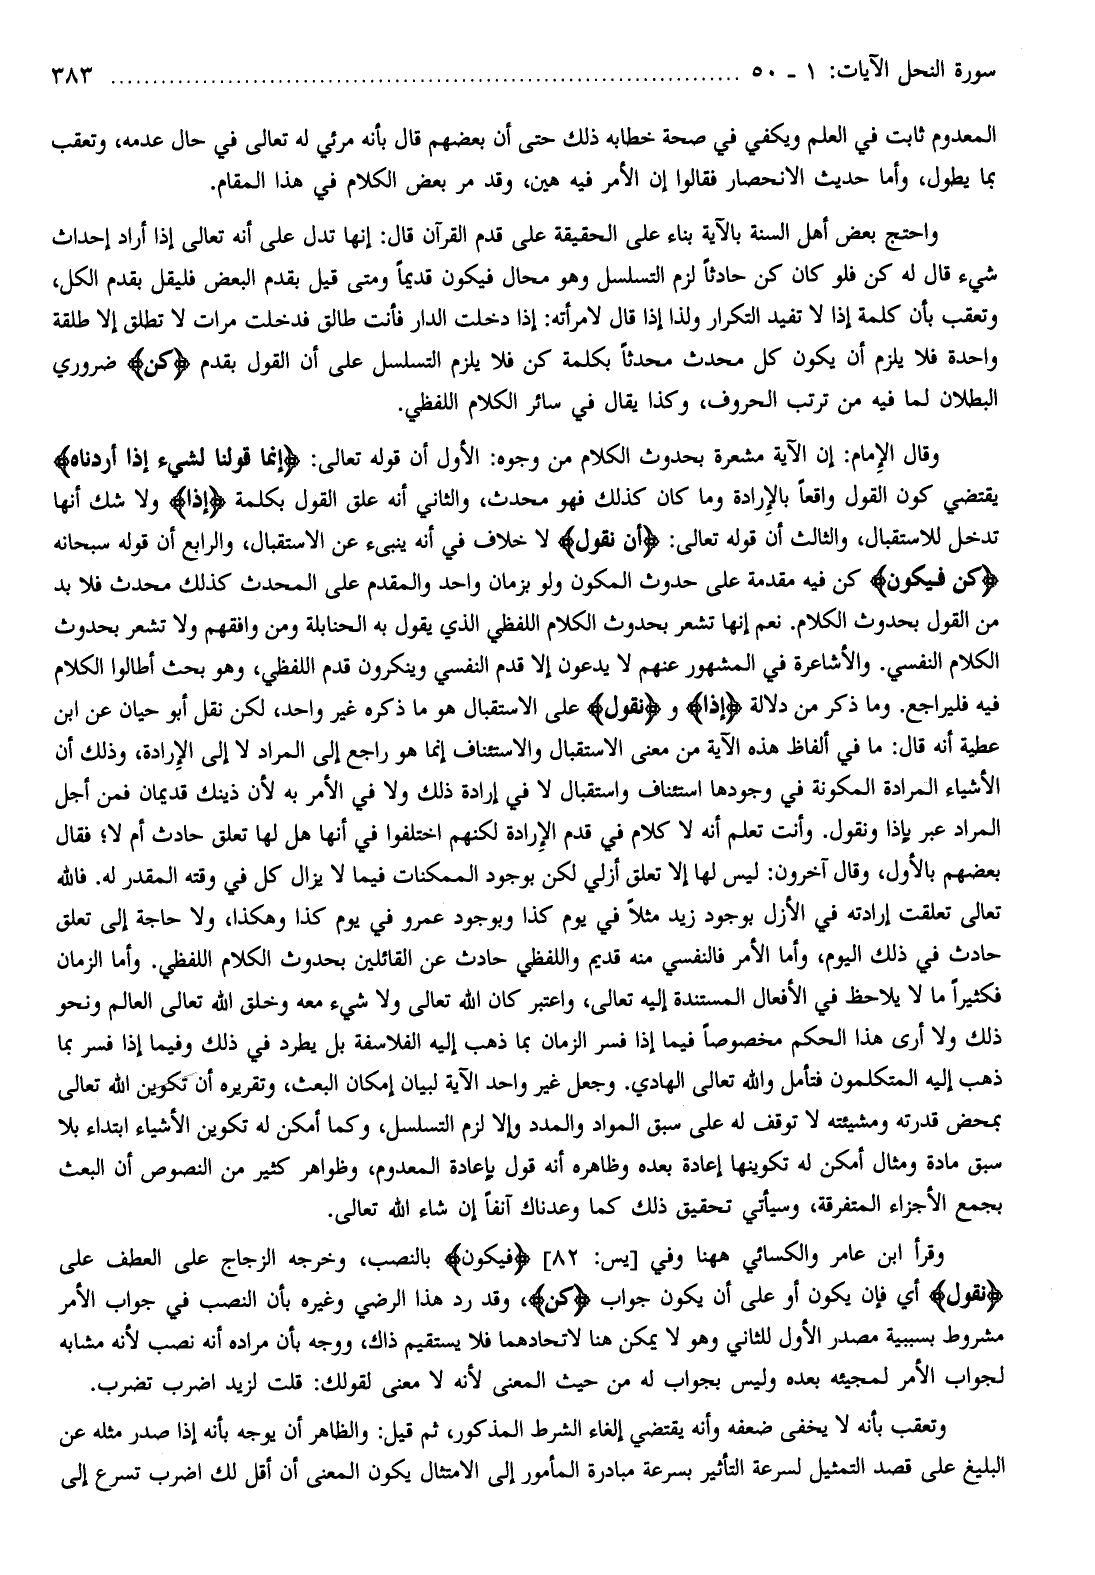 سورة النحل الآيات: ١ ـ ٥٠ ................................................ ٣٨٣
المعدوم ثابت في العلم ويكفي في صحة خطابه ذلك حتى أن بعضهم قال بأنه مرئي له تعالى في حال عدمه، وتعقب
بما يطول، وأما حديث الانحصار فقالوا إن الأمر فيه هين، وقد مر بعض الكلام في هذا المقام.
واحتج بعض أهل السنة بالآية بناء على الحقيقة على قدم القرآن قال: إنها تدل على أنه تعالى إذا أراد إحداث
شيء قال له كن فلو كان كن حادثاً لزم التسلسل وهو محال فيكون قديماً ومتى قيل بقدم البعض فليقل بقدم الكل،
وتعقب بأن كلمة إذا لا تفيد التكرار ولذا إذا قال لامرأته: إذا دخلت الدار فأنت طالق فدخلت مرات لا تطلق إلا طلقة
واحدة فلا يلزم أن يكون كل محدث محدثاً بكلمة كن فلا يلزم التسلسل على أن القول بقدم ﴿كن﴾ ضروري
البطلان لما فيه من ترتب الحروف، وكذا يقال في سائر الكلام اللفظي.
وقال الإمام: إن الآية مشعرة بحدوث الكلام من وجوه: الأول أن قوله تعالى: ﴿إنما قولنا لشيء إذا أردناه﴾
يقتضي كون القول واقعاً بالإرادة وما كان كذلك فهو محدث، والثاني أنه علق القول بكلمة ﴿إذا﴾ ولا شك أنها
تدخل للاستقبال، والثالث أن قوله تعالى: ﴿أن نقول﴾ لا خلاف في أنه ينبىء عن الاستقبال، والرابع أن قوله سبحانه
﴿كن فيكون﴾ كن فيه مقدمة على حدوث المكون ولو بزمان واحد والمقدم على المحدث كذلك محدث فلا بد
من القول بحدوث الكلام. نعم إنها تشعر بحدوث الكلام اللفظي الذي يقول به الحنابلة ومن وافقهم ولا تشعر بحدوث
الكلام النفسي. والأشاعرة في المشهور عنهم لا يدعون إلا قدم النفسي وينكرون قدم اللفظي، وهو بحث أطالوا الكلام
فيه فليراجع. وما ذكر من دلالة ﴿إذا﴾ و ﴿نقول﴾ على الاستقبال هو ما ذكره غير واحد، لكن نقل أبو حيان عن ابن
عطية أنه قال: ما في ألفاظ هذه الآية من معنى الاستقبال والاستئناف إنما هو راجع إلى المراد لا إلى الإرادة، وذلك أن
الأشياء المرادة المكونة في وجودها استئناف واستقبال لا في إرادة ذلك ولا في الأمر به لأن ذينك قديمان فمن أجل
المراد عبر بإذا ونقول. وأنت تعلم أنه لا كلام في قدم الإرادة لكنهم اختلفوا في أنها هل لها تعلق حادث أم لا؛ فقال
بعضهم بالأول، وقال آخرون: ليس لها إلا تعلق أزلي لكن بوجود الممكنات فيما لا يزال كل في وقته المقدر له. فالله
تعالى تعلقت إرادته في الأزل بوجود زيد مثلاً في يوم كذا وبوجود عمرو في يوم كذا وهكذا، ولا حاجة إلى تعلق
حادث في ذلك اليوم، وأما الأمر فالنفسي منه قديم واللفظي حادث عن القائلين بحدوث الكلام اللفظي. وأما الزمان
فكثيراً ما لا يلاحظ في الأفعال المستندة إليه تعالى، واعتبر كان الله تعالى ولا شيء معه وخلق الله تعالى العالم ونحو
ذلك ولا أرى هذا الحكم مخصوصاً فيما إذا فسر الزمان بما ذهب إليه الفلاسفة بل يطرد في ذلك وفيما إذا فسر بما
ذهب إليه المتكلمون فتأمل والله تعالى الهادي. وجعل غير واحد الآية لبيان إمكان البعث، وتقريره أن تكوين الله تعالى
بمحض قدرته ومشيئته لا توقف له على سبق المواد والمدد وإلا لزم التسلسل، وكما أمكن له تكوين الأشياء ابتداء بلا
سبق مادة ومثال أمكن له تكوينها إعادة بعده وظاهره أنه قول بإعادة المعدوم، وظواهر كثير من النصوص أن البعث
بجمع الأجزاء المتفرقة، وسيأتي تحقيق ذلك كما وعدناك آنفاً إن شاء الله تعالى.
وقرأ ابن عامر والكسائي ههنا وفي [يس: ٨٢] ﴿فيكون﴾ بالنصب، وخرجه الزجاج على العطف على
﴿نقول﴾ أي فإن يكون أو على أن يكون جواب ﴿كن﴾، وقد رد هذا الرضي وغيره بأن النصب في جواب الأمر
مشروط بسببية مصدر الأول للثاني وهو لا يمكن هنا لاتحادهما فلا يستقيم ذاك، ووجه بأن مراده أنه نصب لأنه مشابه
لجواب الأمر لمجيئه بعده وليس بجواب له من حيث المعنى لأنه لا معنى لقولك: قلت لزيد اضرب تضرب.
وتعقب بأنه لا يخفى ضعفه وأنه يقتضي إلغاء الشرط المذكور، ثم قيل: والظاهر أن يوجه بأنه إذا صدر مثله عن
البليغ على قصد التمثيل لسرعة التأثير بسرعة مبادرة المأمور إلى الامتثال يكون المعنى أن أقل لك اضرب تسرع إلى